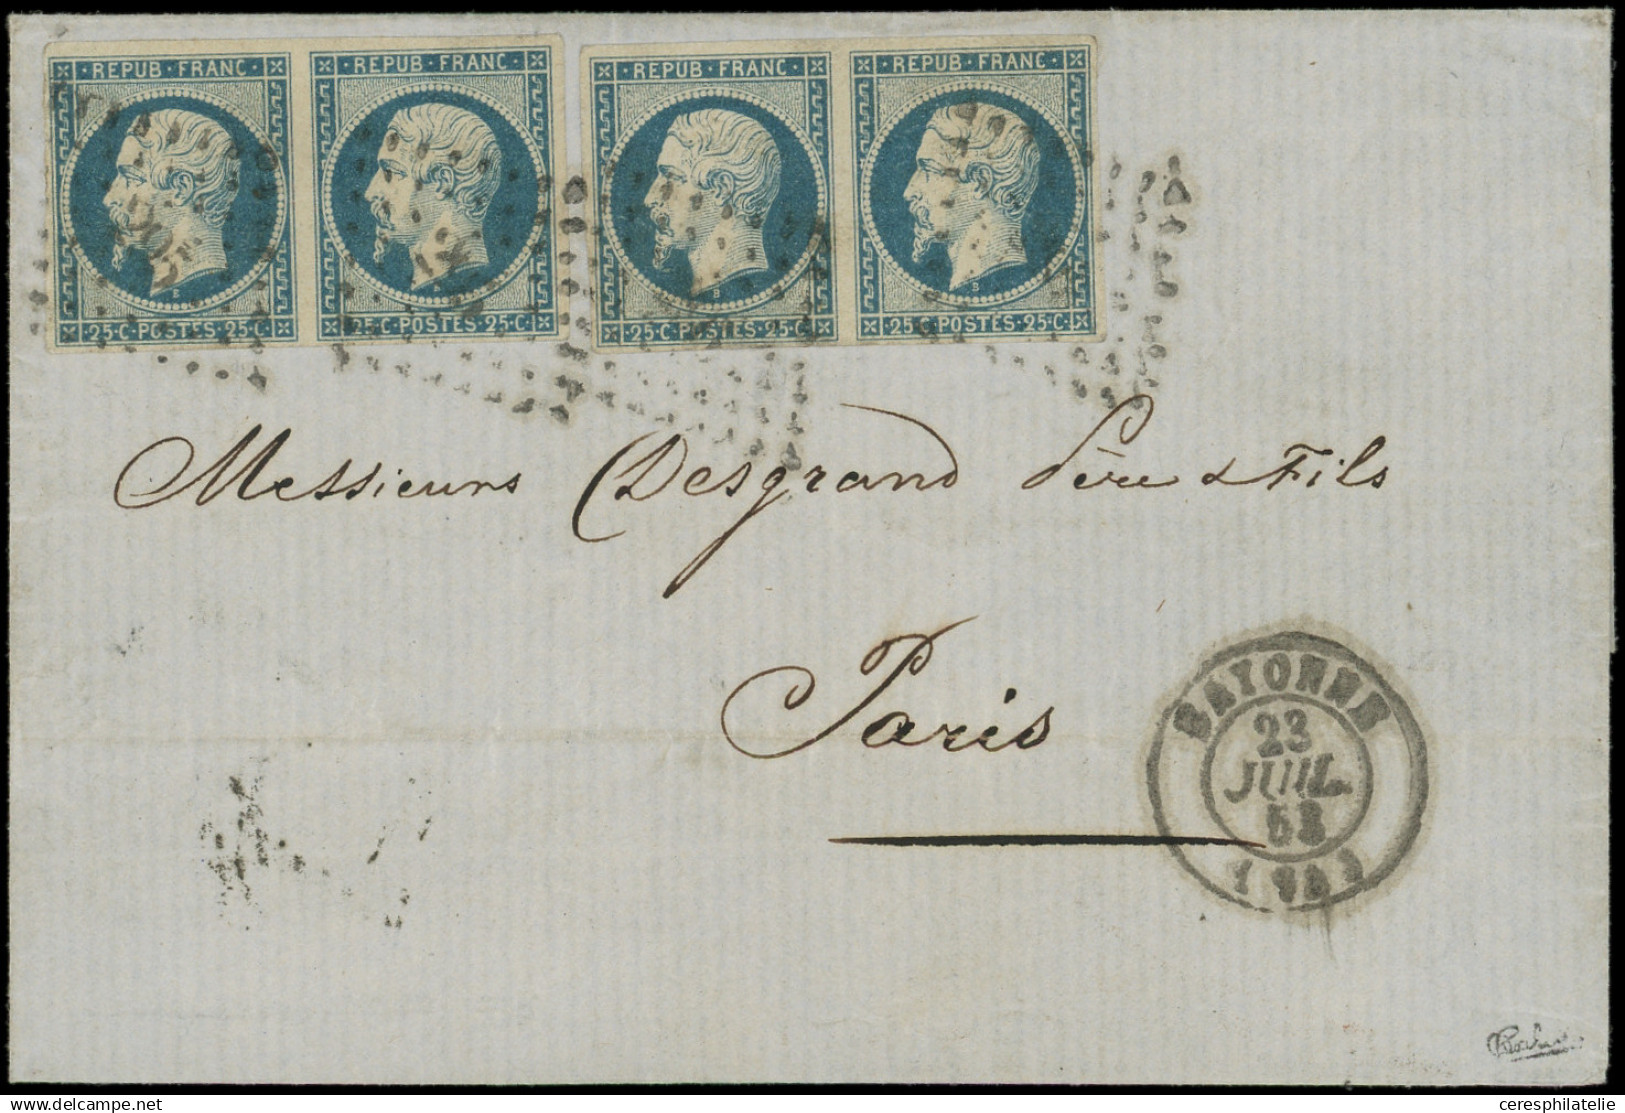 REPUB·FRANC REPUB·FRANC REPUB·FRANC REPUB·FRANC
25·C·POSTES·25·C 25·C·POSTES·25·C 25·C·POSTES·25·C 25·C·POSTES·25·C
Messieurs Desgrand Père & Fils
Paris
BAYONNE
23
JUIL.
53
ceresphilatelie